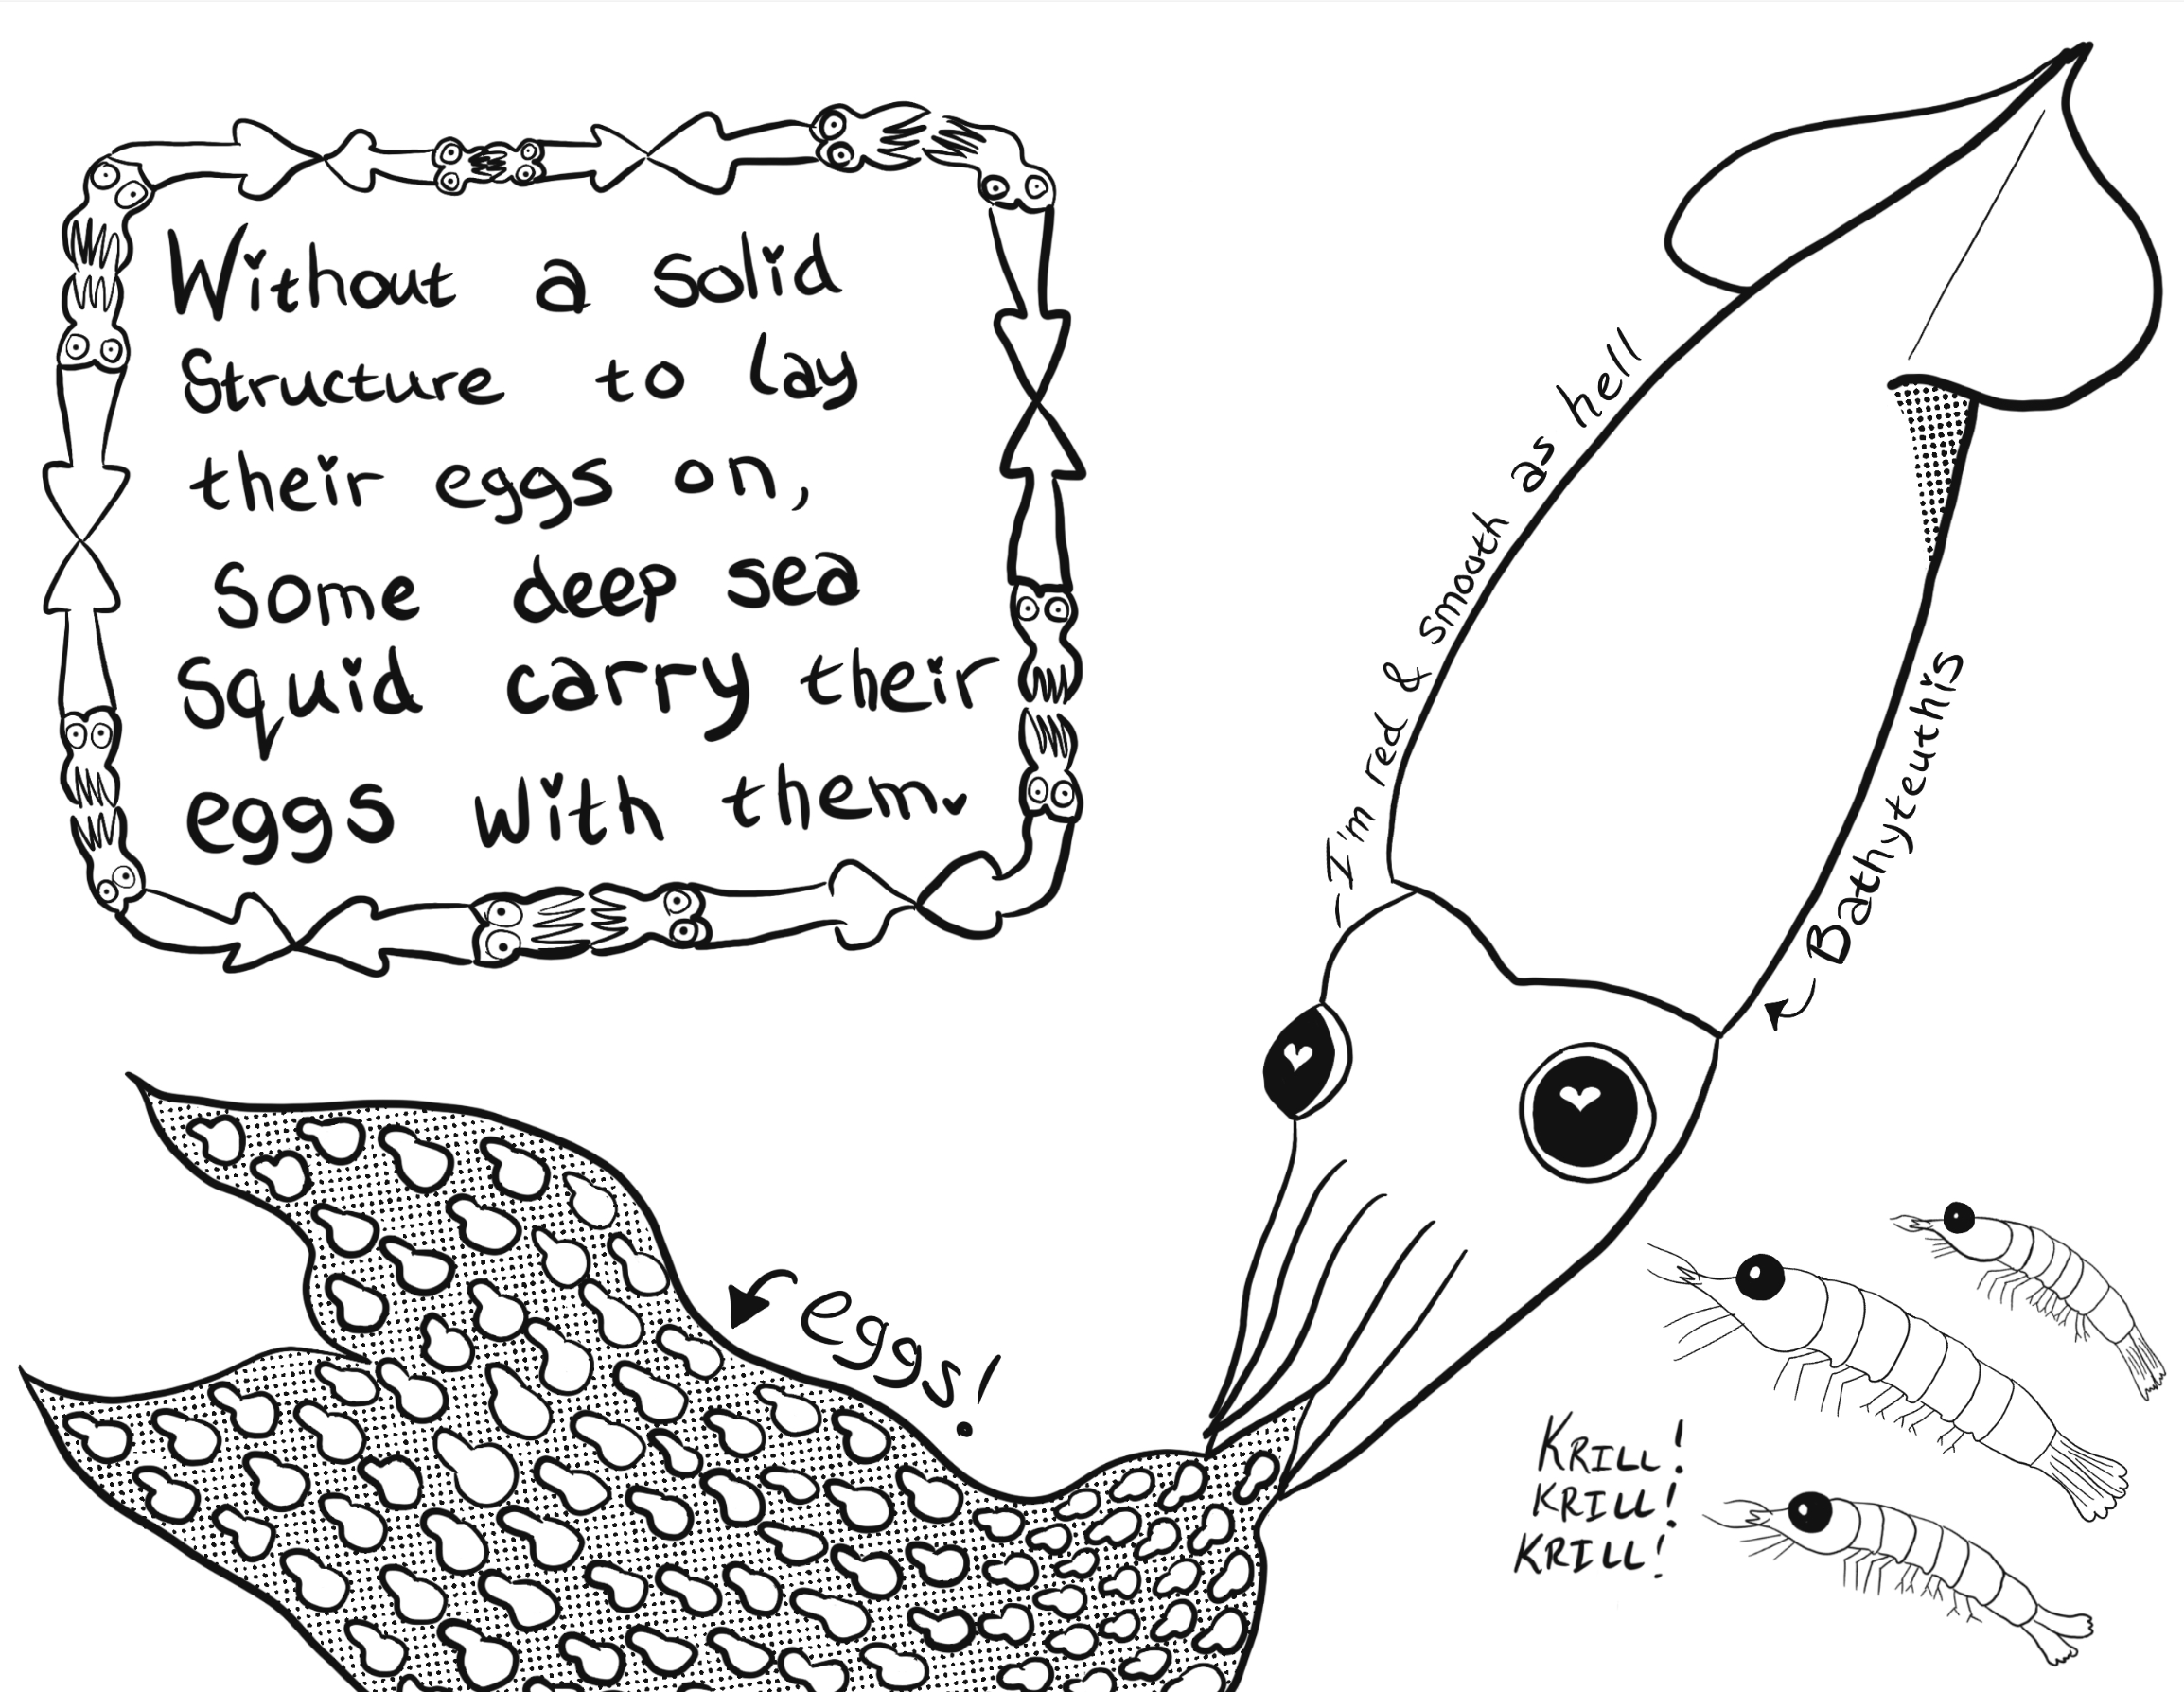 Without a solid
structure to lay
their eggs on,
some deep sea
squid carry their
eggs with them.
I'm red & smooth as hell
Bathyteuthis
eggs!
KRILL!
KRILL!
KRILL!